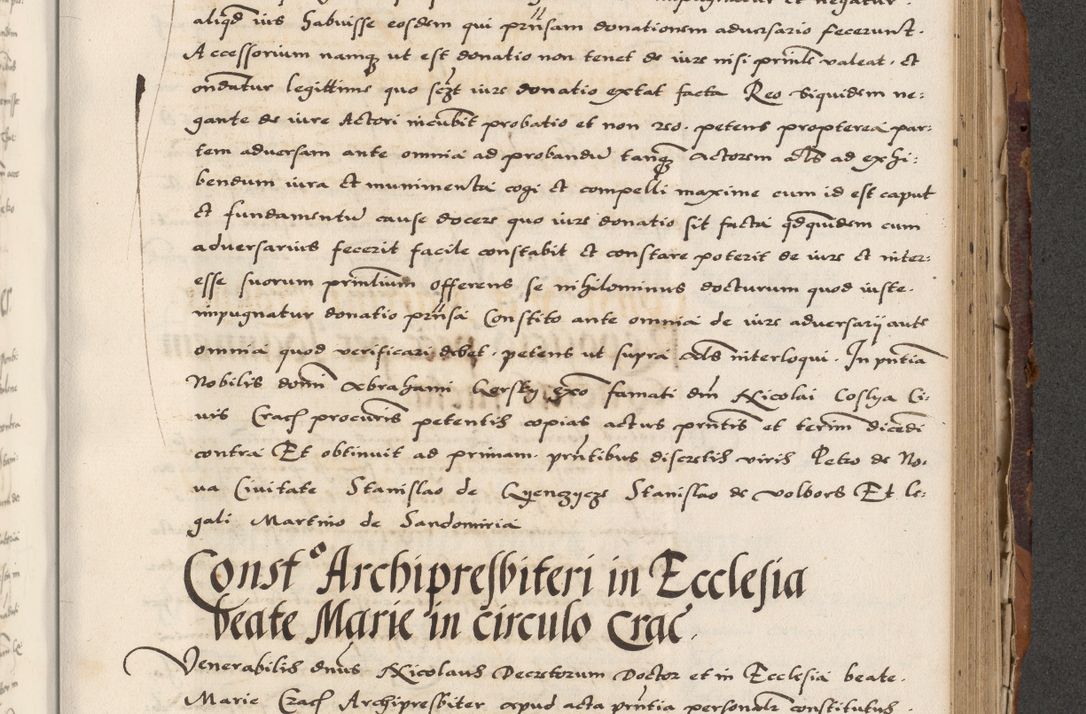 aliqd ius habuisse eosdem qui prnsam donationem adversario fecerunt.
Accessorium namqz ut est donatio non tenet de iure nisi prinle valeat. et
ondatur legittime quo sczt iure donatio extat facta Reo siquidem ne:
gante de iure Actori incubit probatio et non reo. petens propterea par:
tem adversam ante omnia ad probandu tanqz actorem als ad exhi:
bendum iura et munimenta cogi et compelli maxime cum id est caput
et fundamentu cause docere quo iure donatio sit facta qdquidem cum
adversarius fecerit facile constabit et constare poterit de iure et inter:
esse suorum prinlium offerens se nihilominus docturum quod iuste.
impugnatur donatio prnsa Constito ante omnia de iure adversarij ante
omnia quod verificari debet. petens ut supra als interloqui. In pntia
Nobilis domi Abrahami Gersky exo famati dni Nicolai Coslya Ci:
vis Crac procuris petentis copias actus prntis et termi dicedi
contra Et obtinuit ad primam. prntibus discretis viris Petro de No:
va Civitate Stanislao de Gyenczycze Stanislao de volbors Et le:
gali Martino de Sandomiria
Const° Archipresbiteri in Ecclesia
beate Marie in circulo Crac.
Venerabilis dnus Nicolaus Decretorum Doctor et in Ecclesia beate.
Marie Crac Archipresbiter apud acta prntia personalr constitutus.